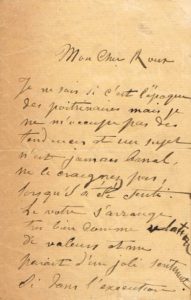 Mon Cher Roux
Je ne sais si c'est l'époque
des poitrinaires mais je
ne m'occupe pas des
tendances et un sujet
n'est jamais banal,
ne le craignez pas,
lorsqu'il a été senti.
Le votre s'arrange
très bien comme relation
de valeurs et me
parait d'un joli sentiment.
Si dans l'exécution